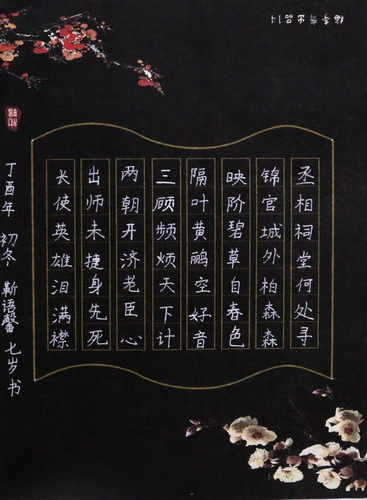 丞相祠堂何处寻
锦官城外柏森森
映阶碧草自春色
隔叶黄鹂空好音
三顾频烦天下计
两朝开济老臣心
出师未捷身先死
长使英雄泪满襟
丁酉年 初冬 靳语馨 七岁书